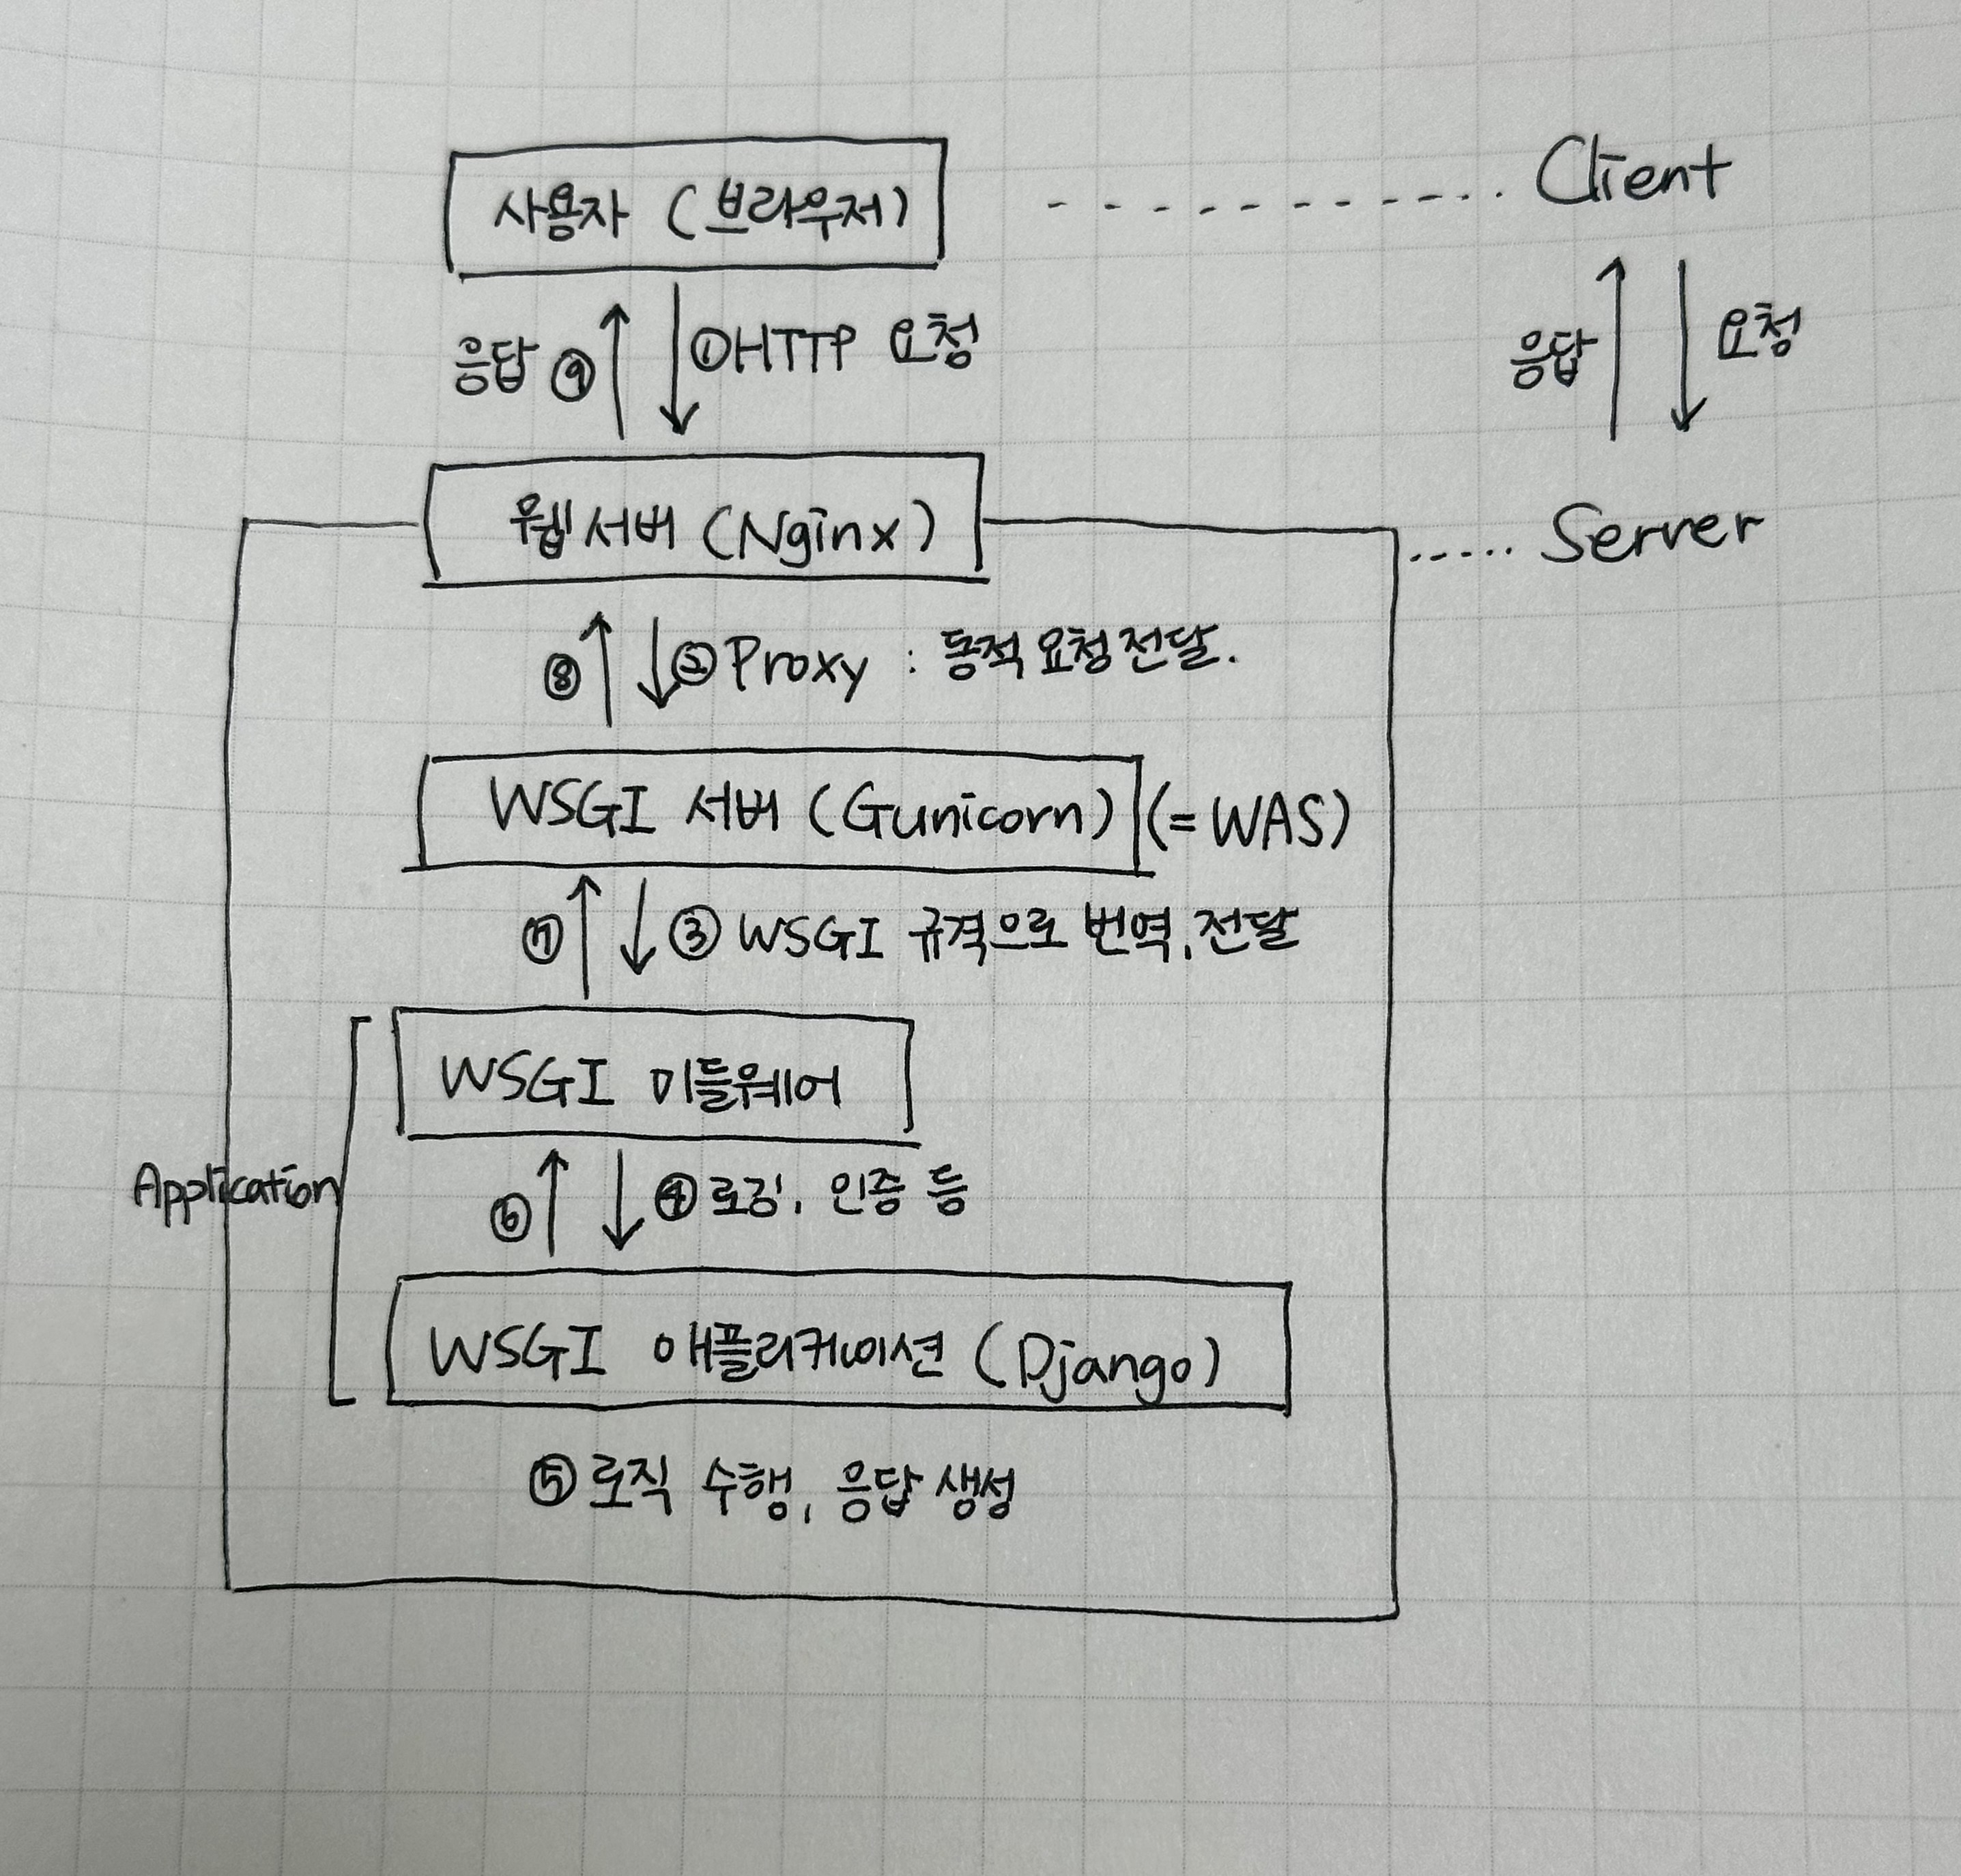 사용자 (브라우저)
Client
응답 ⑨
①HTTP 요청
응답
요청
웹서버 (Nginx)
Server
⑧
②Proxy : 동적 요청 전달.
WSGI 서버 (Gunicorn) (=WAS)
⑦
③ WSGI 규격으로 번역, 전달
WSGI 미들웨어
Application
⑥
④ 로깅, 인증 등
WSGI 애플리케이션 (Django)
⑤ 로직 수행, 응답 생성